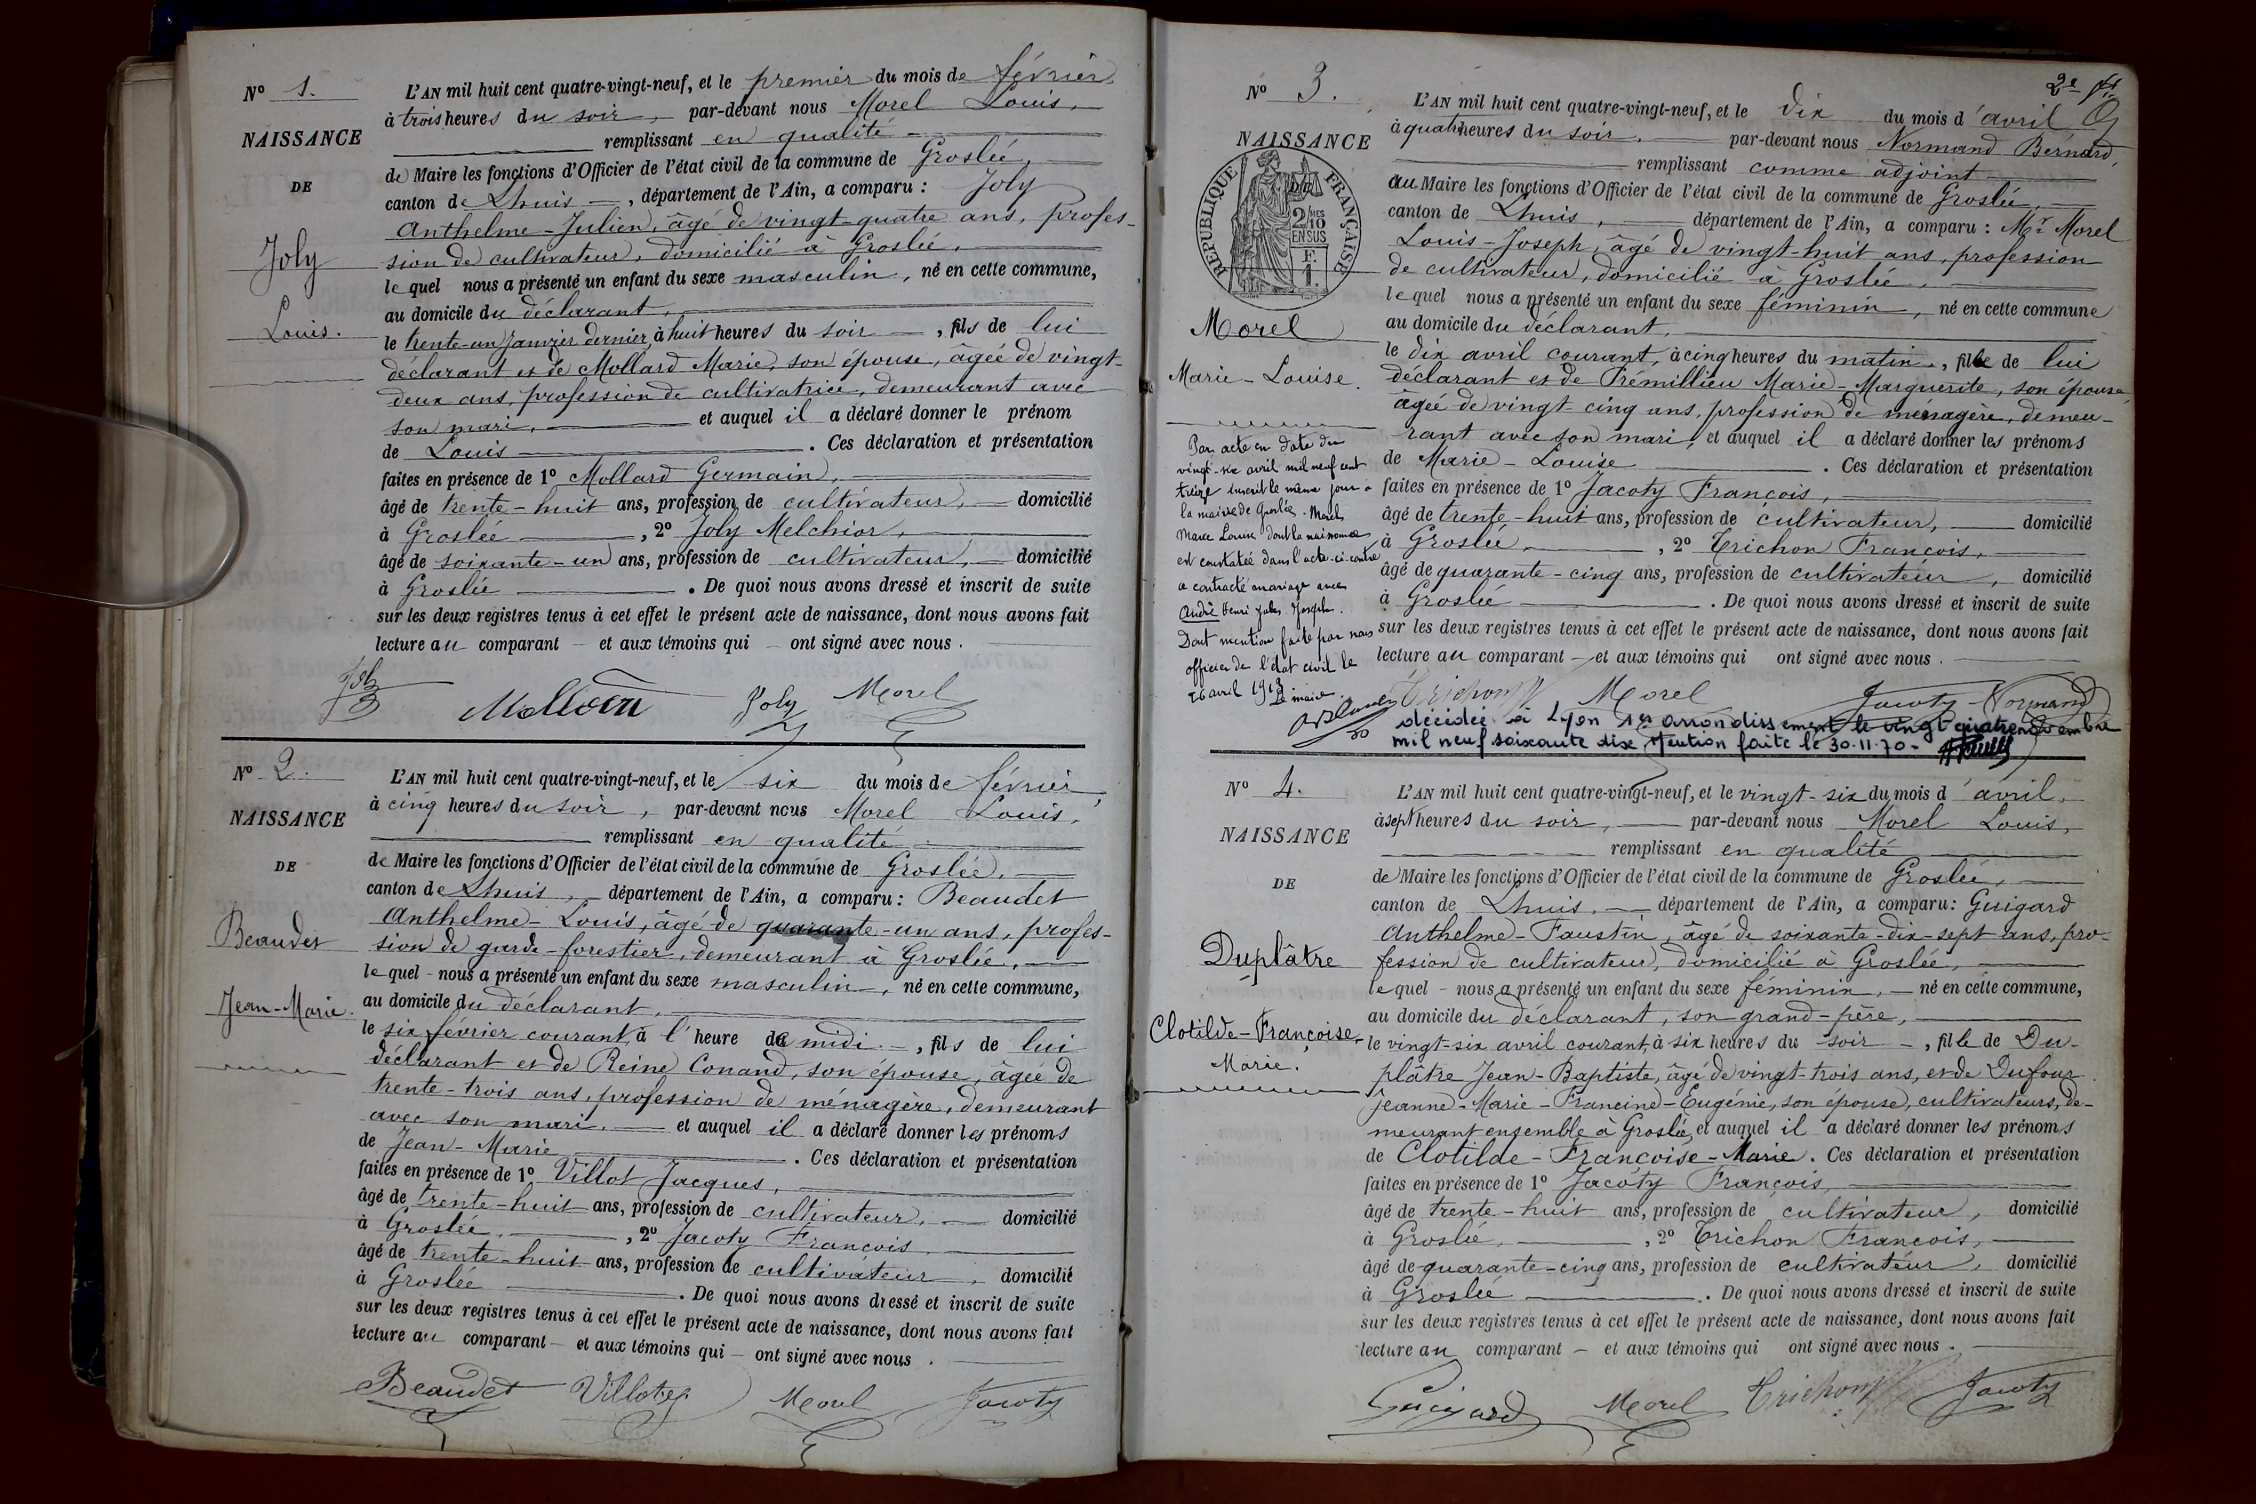 N° 1.
NAISSANCE
DE
Joly
Louis.
L'AN mil huit cent quatre-vingt-neuf, et le premier du mois de février
à trois heures du soir, par-devant nous Morel Louis,
remplissant en qualité
de Maire les fonctions d'Officier de l'état civil de la commune de Groslée,
canton de Lhuis, département de l'Ain, a comparu : Joly
Anthelme-Julien, âgé de vingt-quatre ans, profes-
sion de cultivateur, domicilié à Groslée,
lequel nous a présenté un enfant du sexe masculin, né en cette commune,
au domicile du déclarant,
le trente-un janvier dernier, à huit heures du soir, fils de lui
déclarant et de Mollard Marie, son épouse, âgée de vingt-
deux ans, profession de cultivatrice, demeurant avec
son mari, et auquel il a déclaré donner le prénom
de Louis. Ces déclaration et présentation
faites en présence de 1° Mollard Germain,
âgé de trente-huit ans, profession de cultivateur, domicilié
à Groslée, 2° Joly Melchior,
âgé de soixante-un ans, profession de cultivateur, domicilié
à Groslée. De quoi nous avons dressé et inscrit de suite
sur les deux registres tenus à cet effet le présent acte de naissance, dont nous avons fait
lecture au comparant et aux témoins qui ont signé avec nous.
Joly Morel
N° 2.
NAISSANCE
DE
Beaudet
Jean-Marie.
L'AN mil huit cent quatre-vingt-neuf, et le six du mois de février,
à cinq heures du soir, par-devant nous Morel Louis,
remplissant en qualité
de Maire les fonctions d'Officier de l'état civil de la commune de Groslée,
canton de Lhuis, département de l'Ain, a comparu : Beaudet
Anthelme-Louis, âgé de quarante-un ans, profes-
sion de garde-forestier, demeurant à Groslée,
lequel nous a présenté un enfant du sexe masculin, né en cette commune,
au domicile du déclarant,
le six février courant, à l'heure de midi, fils de lui
déclarant et de Reine Conand, son épouse, âgée de
trente-trois ans, profession de ménagère, demeurant
avec son mari, et auquel il a déclaré donner les prénoms
de Jean-Marie. Ces déclaration et présentation
faites en présence de 1° Villot Jacques,
âgé de trente-huit ans, profession de cultivateur, domicilié
à Groslée, 2° Jacoty François,
âgé de trente-huit ans, profession de cultivateur, domicilié
à Groslée. De quoi nous avons dressé et inscrit de suite
sur les deux registres tenus à cet effet le présent acte de naissance, dont nous avons fait
lecture au comparant et aux témoins qui ont signé avec nous.
Beaudet Villot Morel Jacoty
N° 3.
NAISSANCE
RÉPUBLIQUE FRANÇAISE
2/10 EN SUS
F. 1.
Morel
Marie-Louise.
Par acte en date du
vingt-six avril mil neuf cent
treize inscrit le même jour à
la mairie de Groslée. Morel
Marie Louise dont la naissance
est constatée dans l'acte ci-contre
a contracté mariage avec
André Henri Jules Joseph.
Dont mention faite par nous
officier de l'état civil le
26 avril 1913
Le maire.
2e
L'AN mil huit cent quatre-vingt-neuf, et le dix du mois d'avril
à quatre heures du soir, par-devant nous Normand Bernard,
remplissant comme adjoint
au Maire les fonctions d'Officier de l'état civil de la commune de Groslée,
canton de Lhuis, département de l'Ain, a comparu : Mr Morel
Louis-Joseph, âgé de vingt-huit ans, profession
de cultivateur, domicilié à Groslée,
lequel nous a présenté un enfant du sexe féminin, né en cette commune
au domicile du déclarant,
le dix avril courant, à cinq heures du matin, fille de lui
déclarant et de Trémillieu Marie-Marguerite, son épouse
âgée de vingt-cinq ans, profession de ménagère, demeu-
rant avec son mari, et auquel il a déclaré donner les prénoms
de Marie-Louise. Ces déclaration et présentation
faites en présence de 1° Jacoty François,
âgé de trente-huit ans, profession de cultivateur, domicilié
à Groslée, 2° Trichon François,
âgé de quarante-cinq ans, profession de cultivateur, domicilié
à Groslée. De quoi nous avons dressé et inscrit de suite
sur les deux registres tenus à cet effet le présent acte de naissance, dont nous avons fait
lecture au comparant et aux témoins qui ont signé avec nous.
Trichon Morel Jacoty Normand
décédée à Lyon 1er arrondissement le vingt quatre novembre
mil neuf soixante dix Mention faite le 30-11-70-
N° 4.
NAISSANCE
DE
Duplâtre
Clotilde-Françoise-
Marie.
L'AN mil huit cent quatre-vingt-neuf, et le vingt-six du mois d'avril,
à sept heures du soir, par-devant nous Morel Louis,
remplissant en qualité
de Maire les fonctions d'Officier de l'état civil de la commune de Groslée,
canton de Lhuis, département de l'Ain, a comparu : Guigard
Anthelme-Faustin, âgé de soixante-dix-sept ans, pro-
fession de cultivateur, domicilié à Groslée,
lequel nous a présenté un enfant du sexe féminin, né en cette commune,
au domicile du déclarant, son grand-père,
le vingt-six avril courant, à six heures du soir, fille de Du-
plâtre Jean-Baptiste, âgé de vingt-trois ans, et de Dufour
Jeanne-Marie-Francine-Eugénie, son épouse, cultivateurs, de-
meurant ensemble à Groslée, et auquel il a déclaré donner les prénoms
de Clotilde-Françoise-Marie. Ces déclaration et présentation
faites en présence de 1° Jacoty François,
âgé de trente-huit ans, profession de cultivateur, domicilié
à Groslée, 2° Trichon François,
âgé de quarante-cinq ans, profession de cultivateur, domicilié
à Groslée. De quoi nous avons dressé et inscrit de suite
sur les deux registres tenus à cet effet le présent acte de naissance, dont nous avons fait
lecture au comparant et aux témoins qui ont signé avec nous.
Guigard Morel Trichon Jacoty